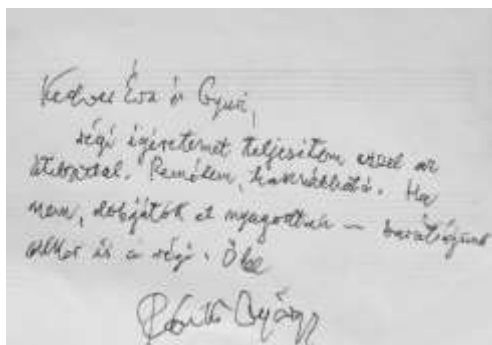 Kedves Éva és Gyuri,
régi ígéretemet teljesítem ezzel az
Remélem, használható. Ha
nem, dobjátok el nyugodtan — barátságunk
akkor is a régi. Ölel
György